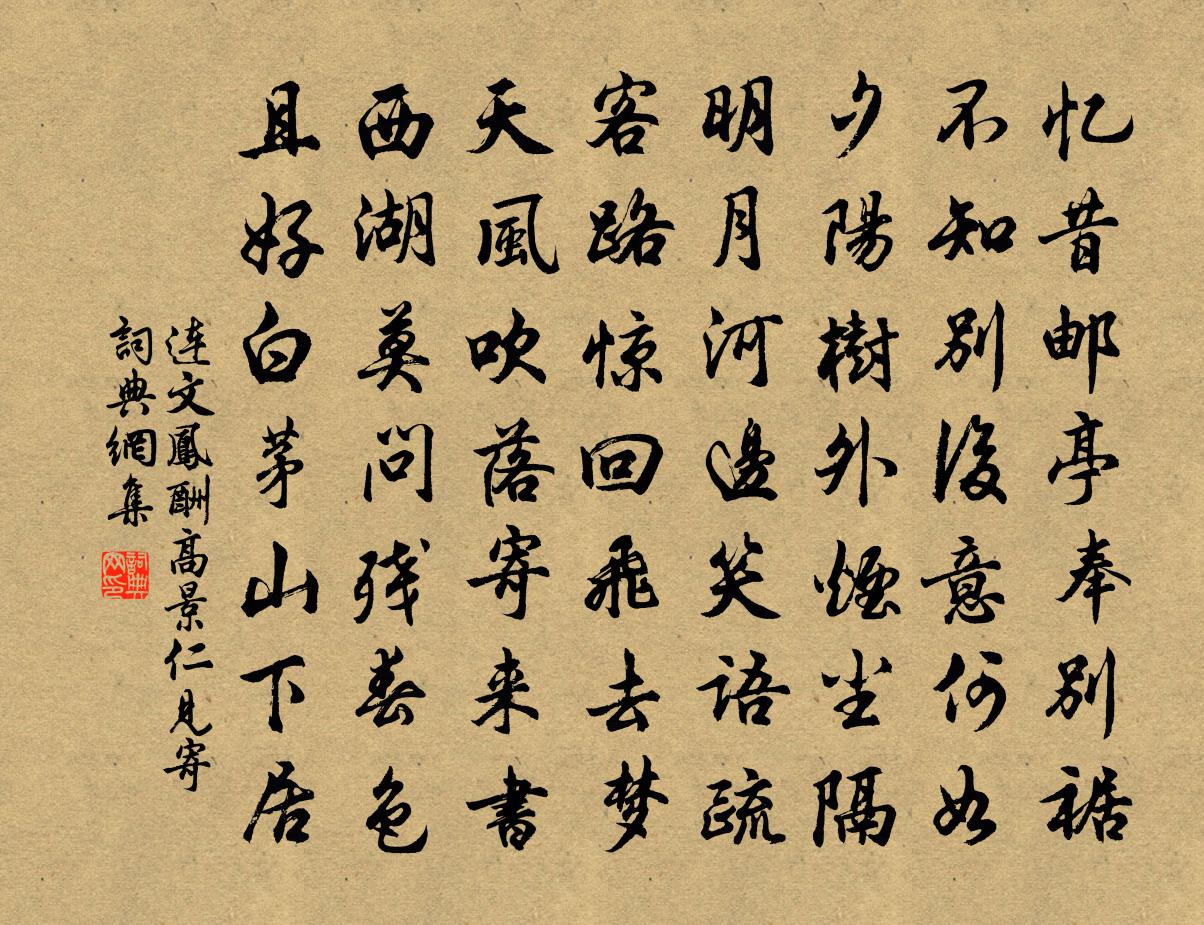 忆昔邮亭奉别裾
不知别後意何如
夕陽樹外煙尘隔
明月河邊笑語疏
客路惊回飛去梦
天風吹落寄来書
西湖莫问残春色
且好白茅山下居
连文鳳酬高景仁見寄
詞典網集
詞典网印